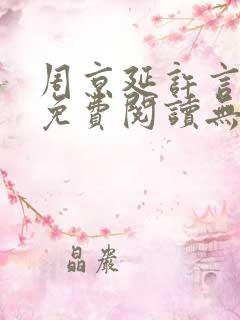 周京延許言
免費閱讀無
晶崴